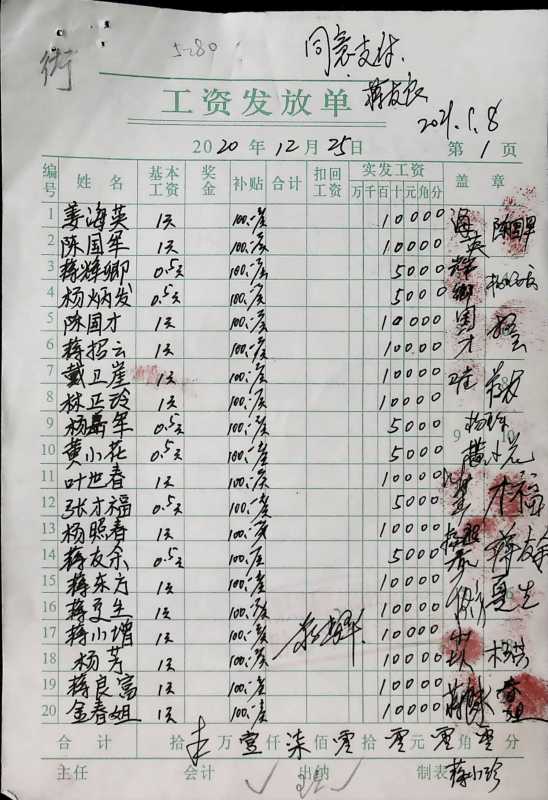 5-280
同意支付.
蒋友良
2021.1.8
工资发放单
2020年12月25日 第1页
编号 姓名 基本工资 奖金 补贴 合计 扣回工资 实发工资 万千百十元角分 盖章
1 姜海英 1天 100.-/天 10000 海英
2 陈国军 1天 100.-/天 10000 陈国军
3 蒋辉卿 0.5天 100.-/天 5000 辉卿
4 杨炳发 0.5天 100.-/天 5000
5 陈国才 1天 100.-/天 10000 国才
6 蒋招云 1天 100.-/天 10000 招云
7 戴卫崖 1天 100.-/天 10000
8 林正玲 1天 100.-/天 10000
9 杨嘉军 0.5天 100.-/天 5000
10 黄小花 0.5天 100.-/天 5000 黄小花
11 叶世春 1天 100.-/天 10000
12 张才福 0.5天 100.-/天 5000 才福
13 杨照春 1天 100.-/天 10000
14 蒋友余 0.5天 100.-/天 5000 蒋友余
15 蒋东方 1天 100.-/天 10000
16 蒋更生 1天 100.-/天 10000
17 蒋小增 1天 100.-/天 10000
18 杨芳 1天 100.-/天 10000 杨芳
19 蒋良富 1天 100.-/天 10000
20 金春姐 1天 100.-/天 10000 春姐
合计 拾 万壹仟柒佰零拾零元零角零分
主任 会计 出纳 制表 蒋小珍